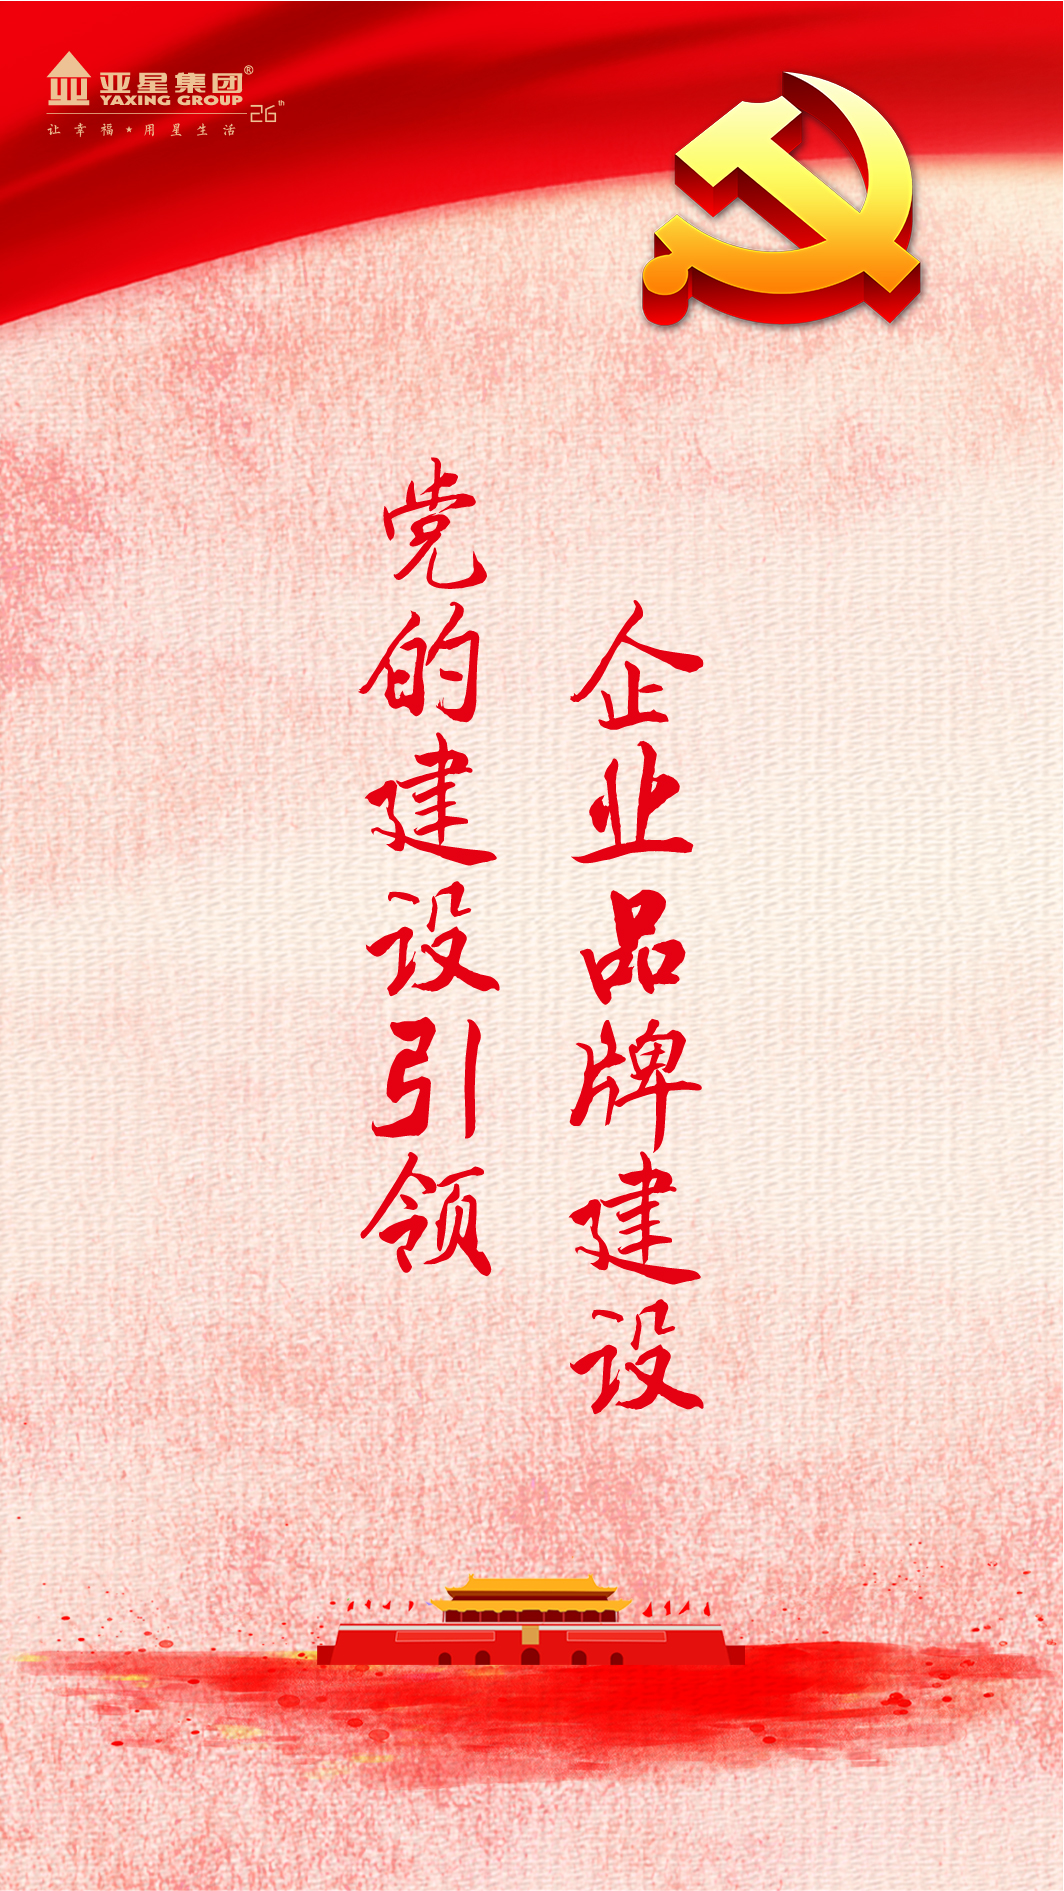 亚星集团®
YAXING GROUP
26th
让幸福★用星生活
党的建设引领
企业品牌建设